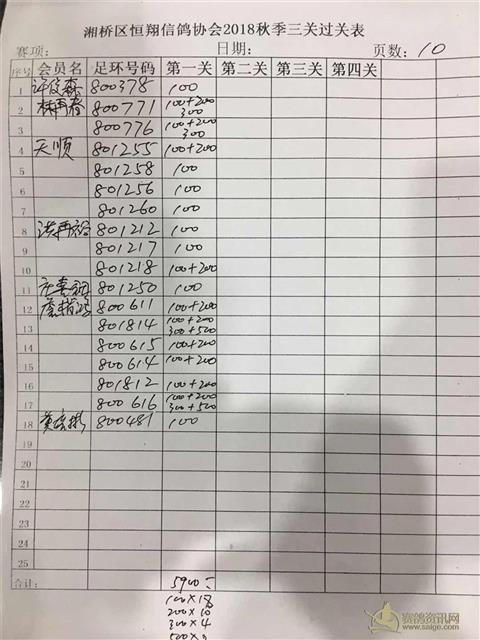 湘桥区恒翔信鸽协会2018秋季三关过关表
赛项: 日期: 页数: 10
序号 会员名 足环号码 第一关 第二关 第三关 第四关
1 800378 100
2 林再春 800771 100+200 300
3 800776 100+200 300
4 天顺 801255 100+200
5 801258 100
6 801256 100
7 801260 100
8 洪再裕 801212 100
9 801217 100
10 801218 100+200
11 801250 100
12 800611 100+200
13 801814 100+200 300+500
14 800615 100+200
15 800614 100+200
16 801812 100+200
17 800616 100+200 300+500
18 800481 100
19
20
21
22
23
24
25
合计: 5900-
100×18
200×10
300×4
500×
赛鸽资讯网
www.saige.com